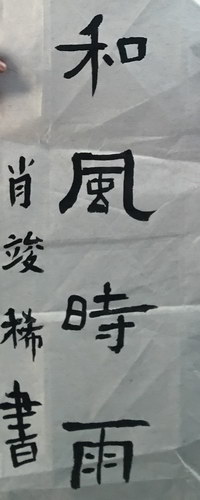 和風時雨
肖竣稀書